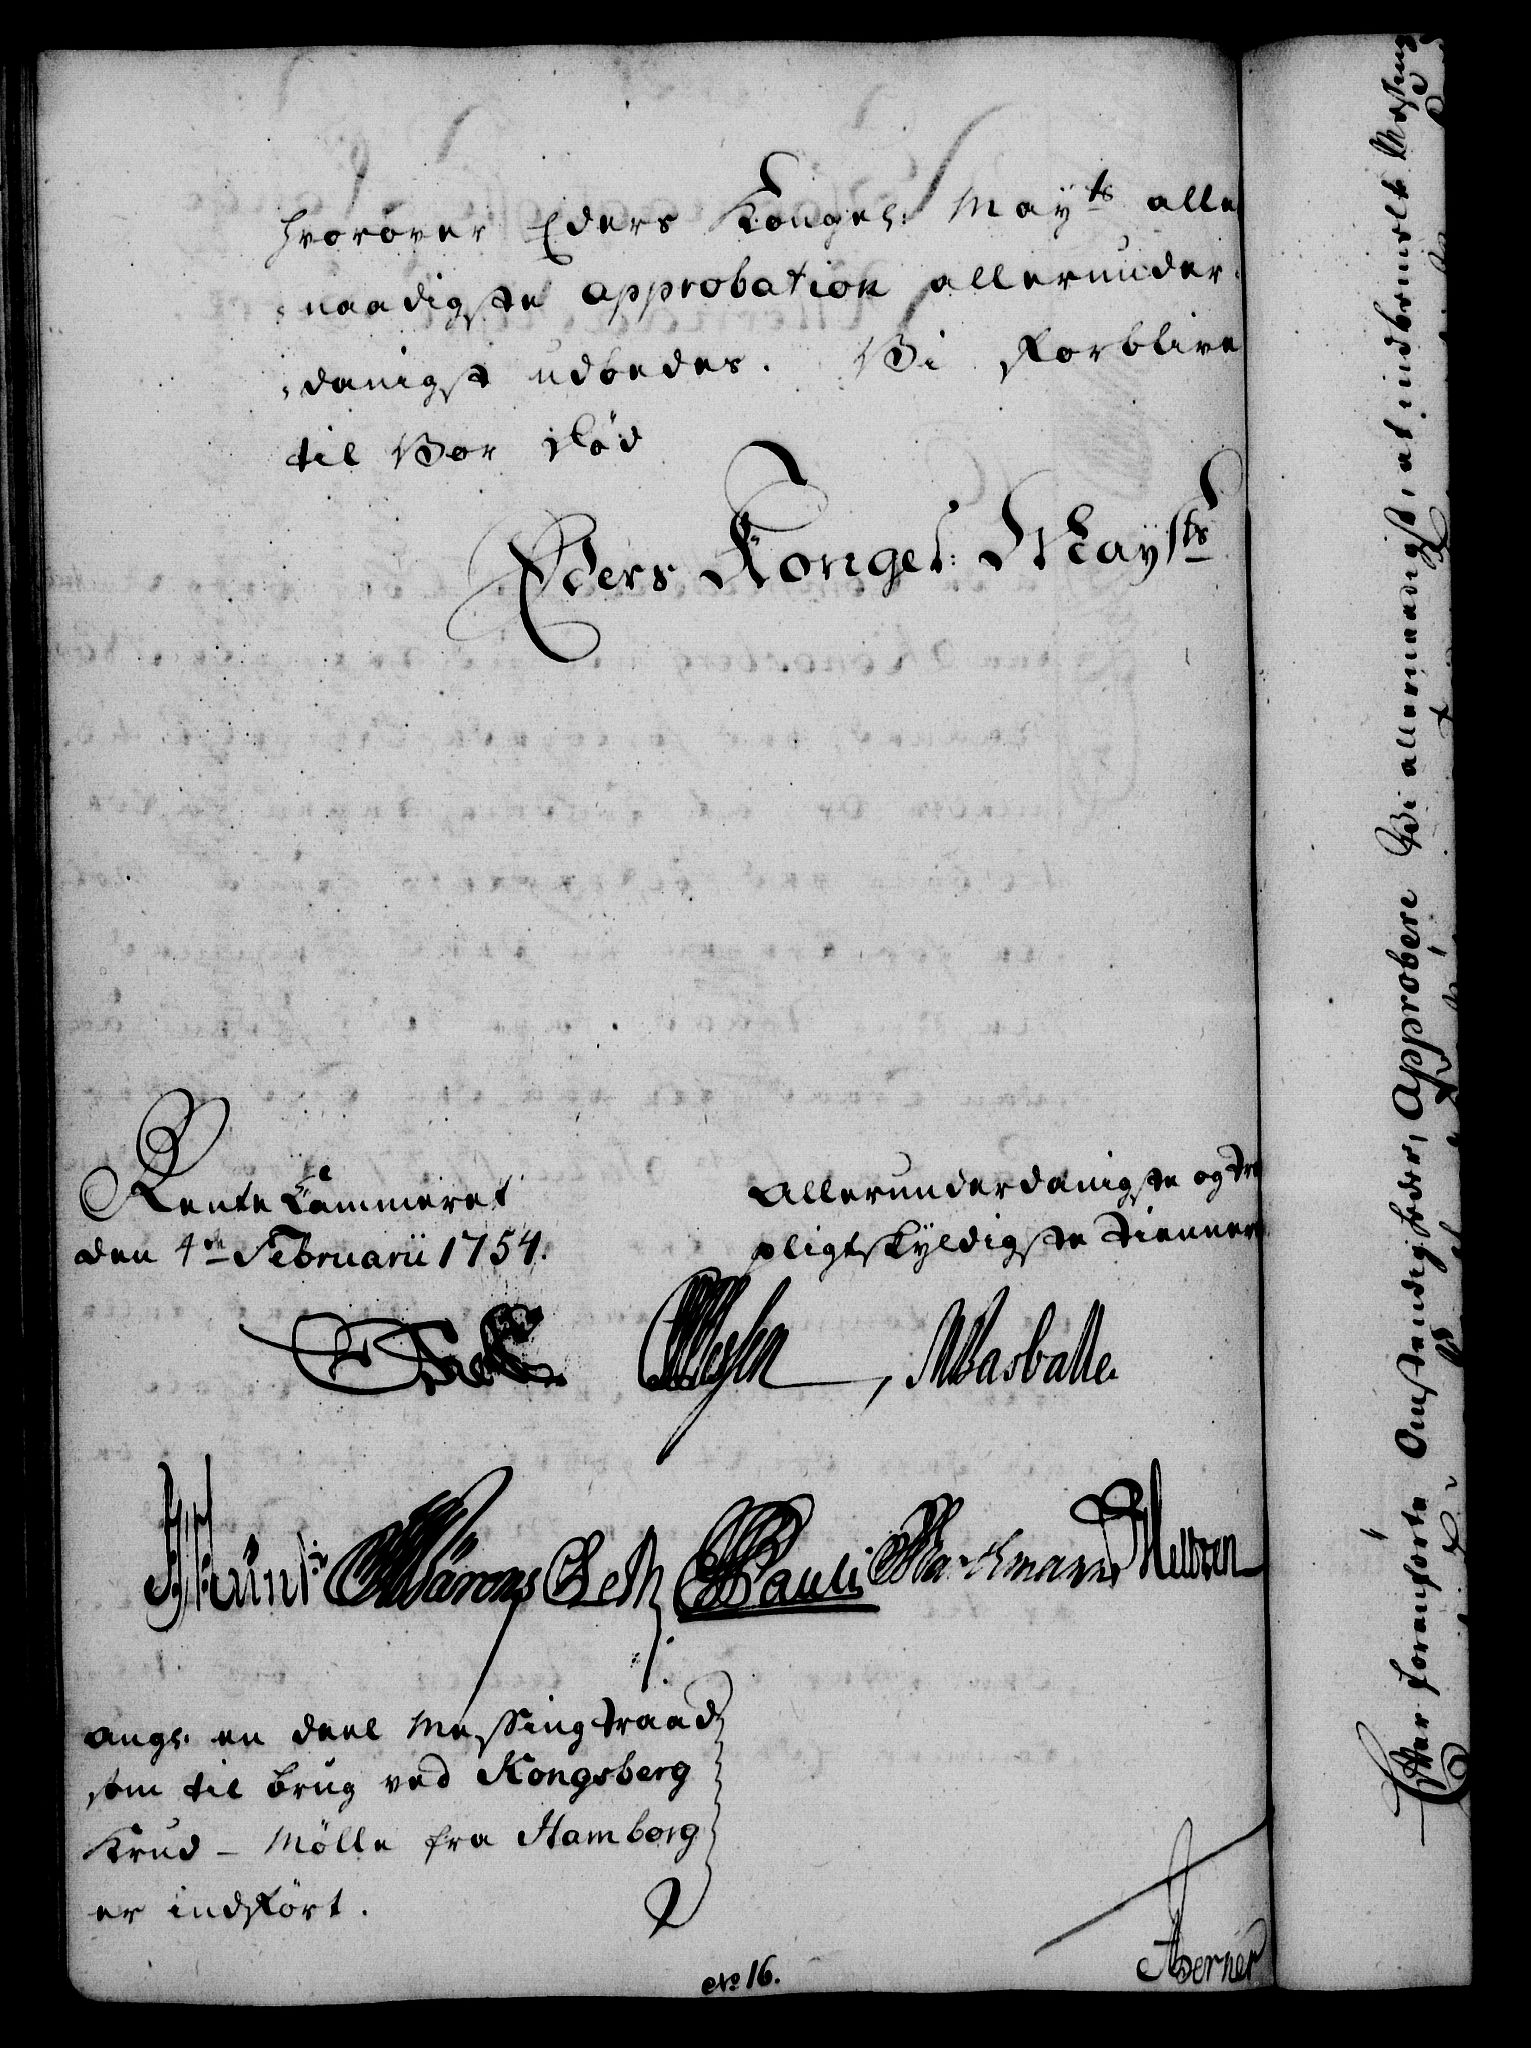 hvorover Eders Kongel: Mayts aller
naadigste approbation allerunder-
danigst udbedes. Vi forblive
til Vor Död
Eders Kongel: Maysts
Rente Cammeret
den 4de Februarii 1754.
Allerunderdanigste og tro
pligtskyldigste tienner
Wasballe
Pauli
angl. en deel Messing traad
som til brug ved Kongsberg
Krud-Mölle fra Hamborg
er indfört.
No 16.
Efter foranförte Omstendigheder, Approbere Vi allernaadigst, at indbemelte Messing